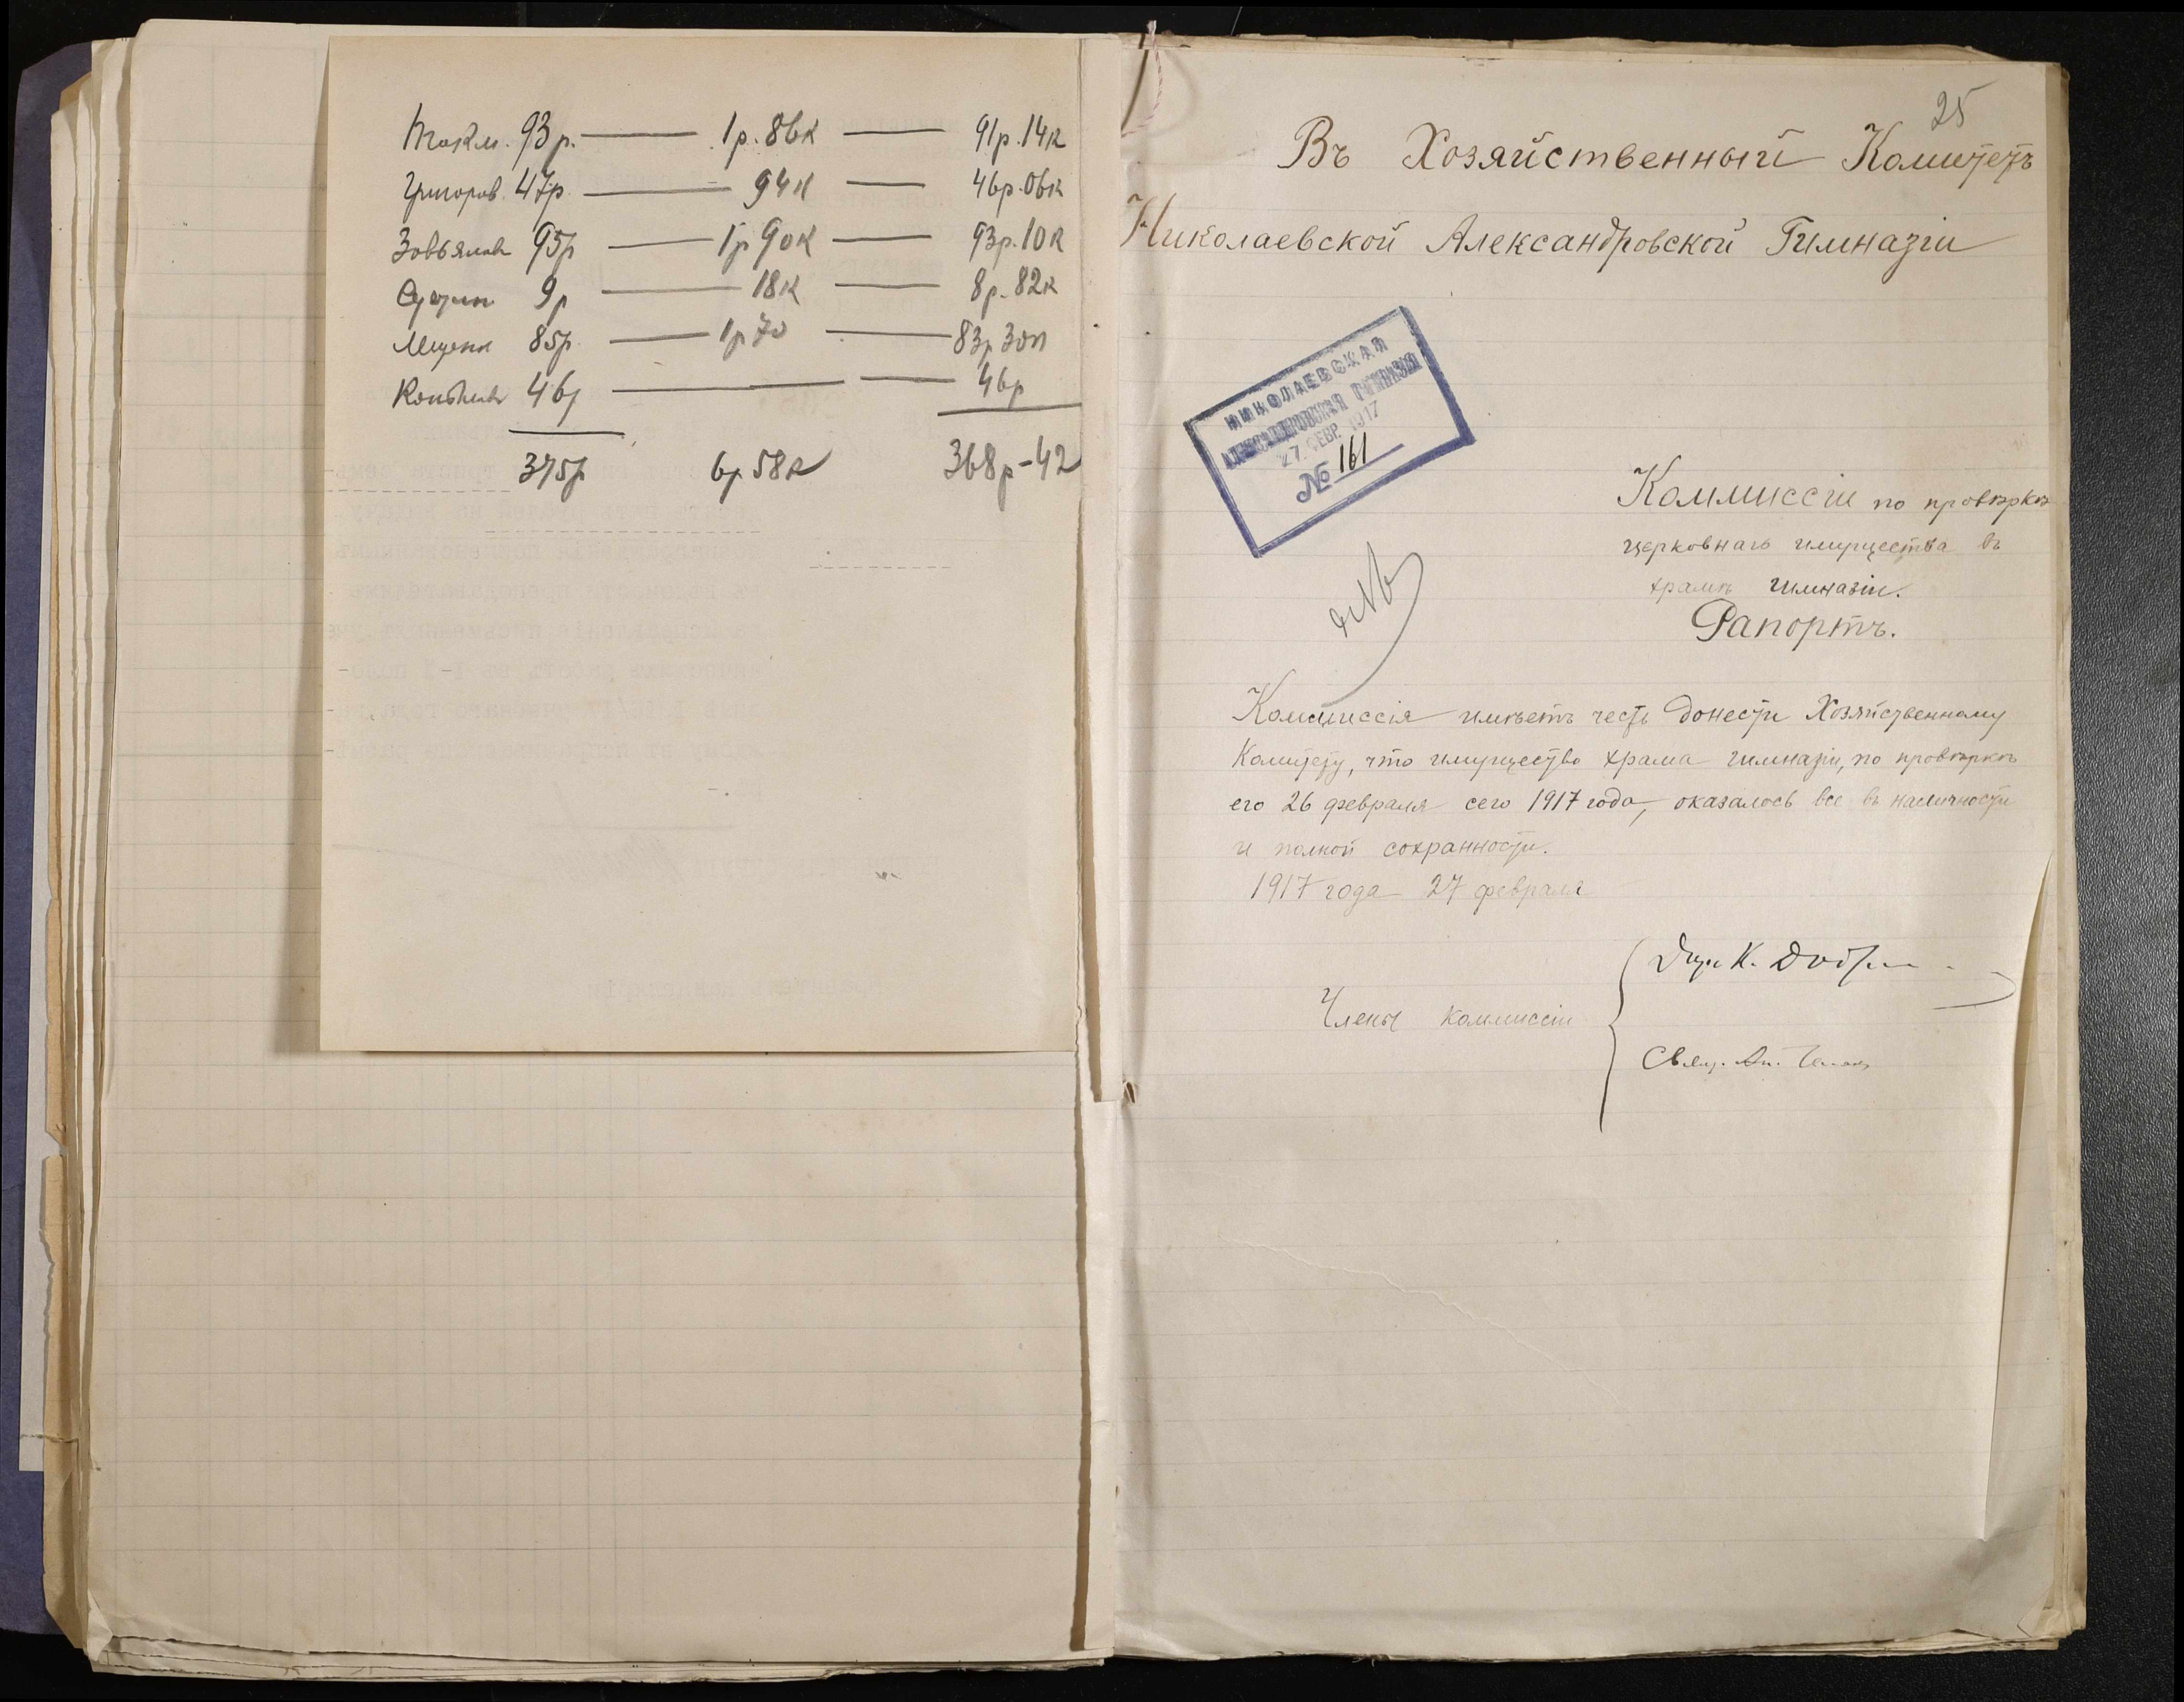 93р. — 1р. 86к — 91р. 14к
Григоров. 47р. — 94к — 46р. 06к
95р — 1р 90к — 93р. 10к
9р — 18к — 8р. 82к
85р. — 1р 70 — 83р 30к
46р — 46р
375р 6р 58к 368р-42
25
Въ Хозяйственный Комитетъ
Николаевской Александровской Гимназіи
НИКОЛАЕВСКАЯ
АЛЕКСАНДРОВСКАЯ ГИМНАЗІЯ
27. ФЕВР. 1917
№ 161
Коммиссіи по провѣркѣ
церковнаго имущества въ
храмѣ гимназіи.
Рапортъ.
Коммиссія имѣетъ честь донести Хозяйственному
Комитету, что имущество храма гимназіи, по провѣркѣ
его 26 февраля сего 1917 года, оказалось все въ наличности
и полной сохранности.
1917 года 27 февраля
Члены коммиссіи
К.
Свящ.